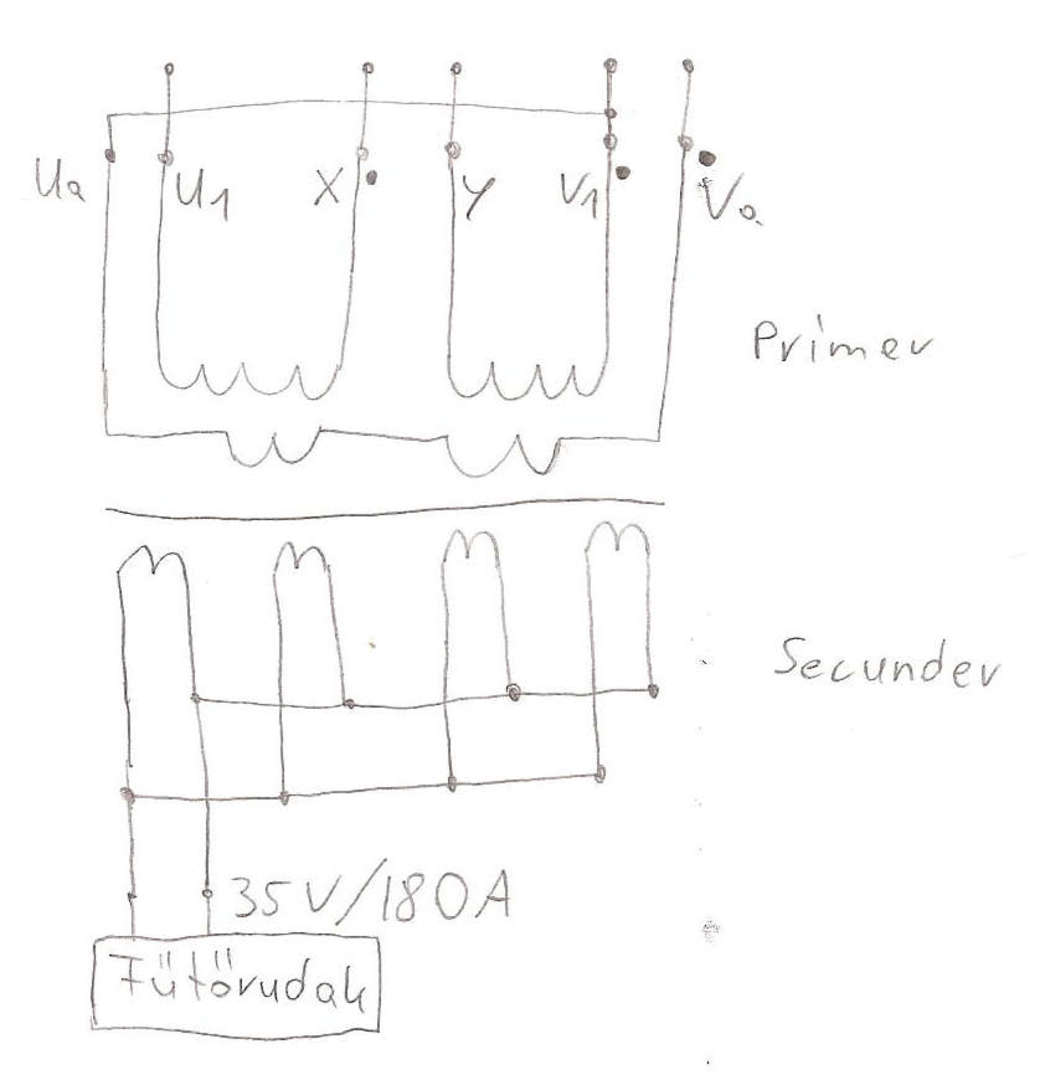 Ua U1 X Y V1 Va
Primer
Secunder
35V/180A
Fűtőrudak